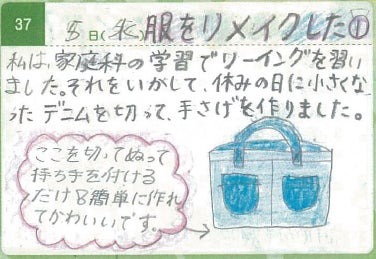 37
5日(水)服をリメイクした①
私は、家庭科の学習でソーイングを習い
ました。それをいかして、休みの日に小さくな
った デニムを切って、手さげを作りました。
ここを切ってぬって
持ち手を付ける
だけ
簡単に作れ
てかわいいです。